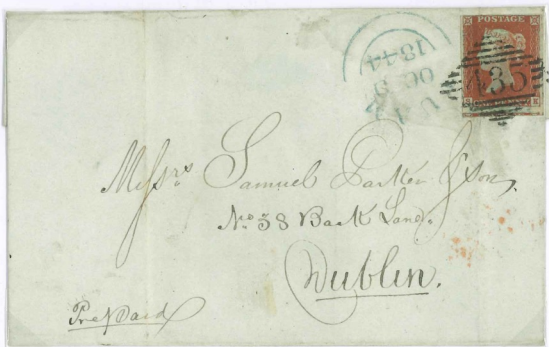 POSTAGE
435
1844
OC 9
Messrs Samuel Parker & Son.
No 38 Back Lane.
Dublin.
Prepaid